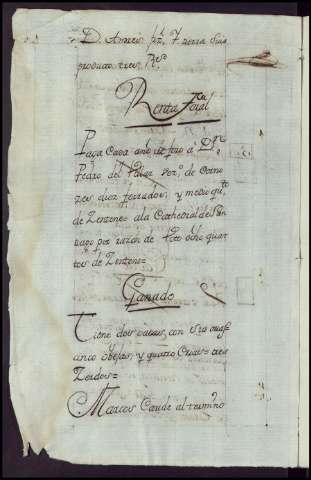 D. Andres
producto tres Rs
Renta foral
Paga Cada año de foro a Dn
Pedro del Villar vezº de
tres diez ferrados, y medio
de Zenteno ala Cathedral de San
tiago por razon de Voto ocho quar
tos de Zenteno=
Ganado
Tiene dos vacas, con sus crias
cinco obejas, y quatro Crias= tres
Zerdos=
Marcos Caude al termino